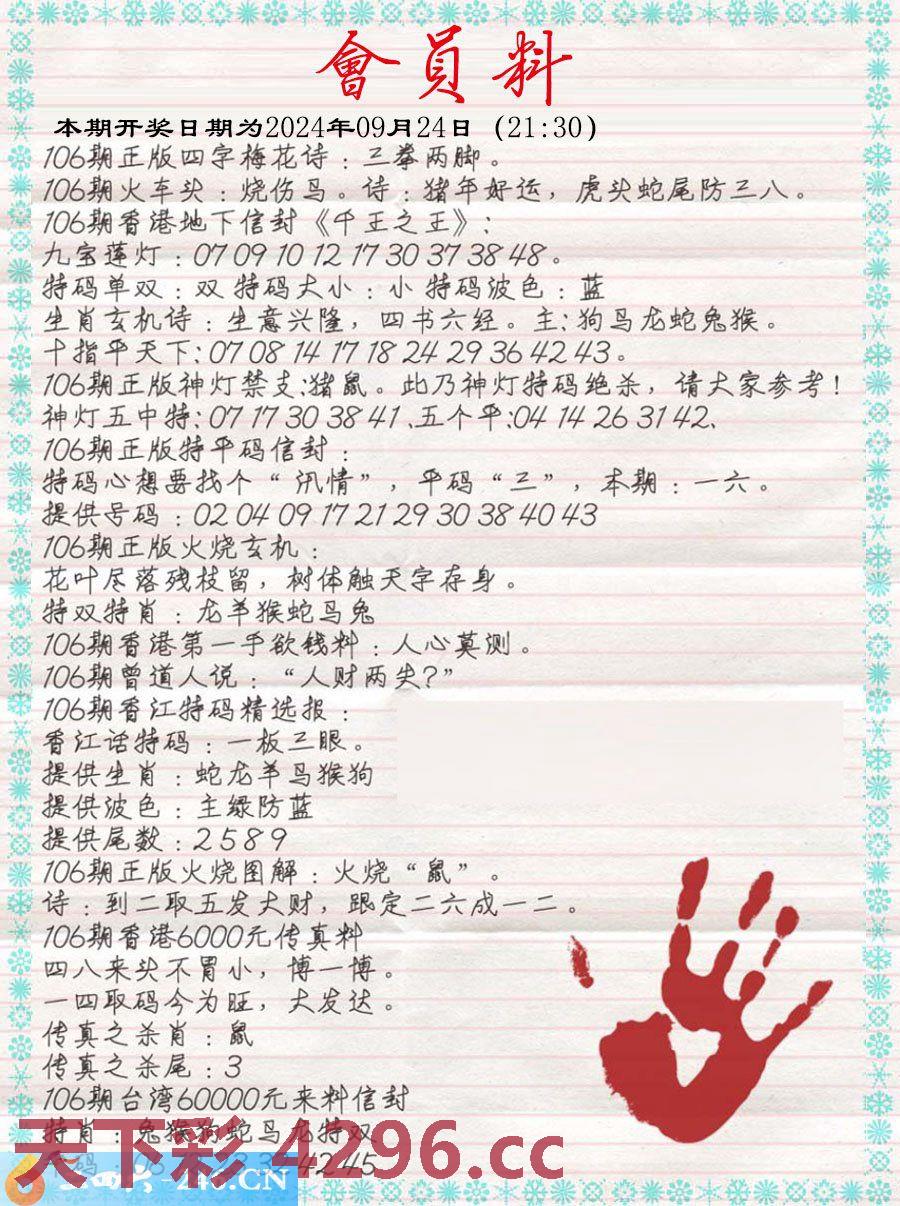 會員料
本期开奖日期为2024年09月24日（21:30）
106期正版四字梅花诗：三拳两脚。
106期火车头：烧伤鸟。诗：猪年好运，虎头蛇尾防三八。
106期香港地下信封《千王之王》：
九宝莲灯：07 09 10 12 17 30 37 38 48。
特码单双：双 特码大小：小 特码波色：蓝
生肖玄机诗：生意兴隆，四书六经。主：狗马龙蛇兔猴。
十指平天下：07 08 14 17 18 24 29 36 42 43。
106期正版神灯禁支：猪鼠。此乃神灯特码绝杀，请大家参考！
神灯五中特：07 17 30 38 41、五个平：04 14 26 31 42、
106期正版特平码信封：
特码心想要找个“汛情”，平码“三”，本期：一六。
提供号码：02 04 09 17 21 29 30 38 40 43
106期正版火烧玄机：
花叶尽落残枝留，树体触天字存身。
特双特肖：龙羊猴蛇马兔
106期香港第一手欲钱料：人心莫测。
106期曾道人说：“人财两失？”
106期香江特码精选报：
香江话特码：一板三眼。
提供生肖：蛇龙羊马猴狗
提供波色：主绿防蓝
提供尾数：2 5 8 9
106期正版火烧图解：火烧“鼠”。
诗：到二取五发大财，跟定二六成一二。
106期香港6000元传真料
四八来头不冒小，博一博。
一四取码今为旺，大发达。
传真之杀肖：鼠
传真之杀尾：3
106期台湾60000元来料信封
特肖：兔猴狗蛇马龙特双
天下彩 4296.cc
42 45
-246.CN